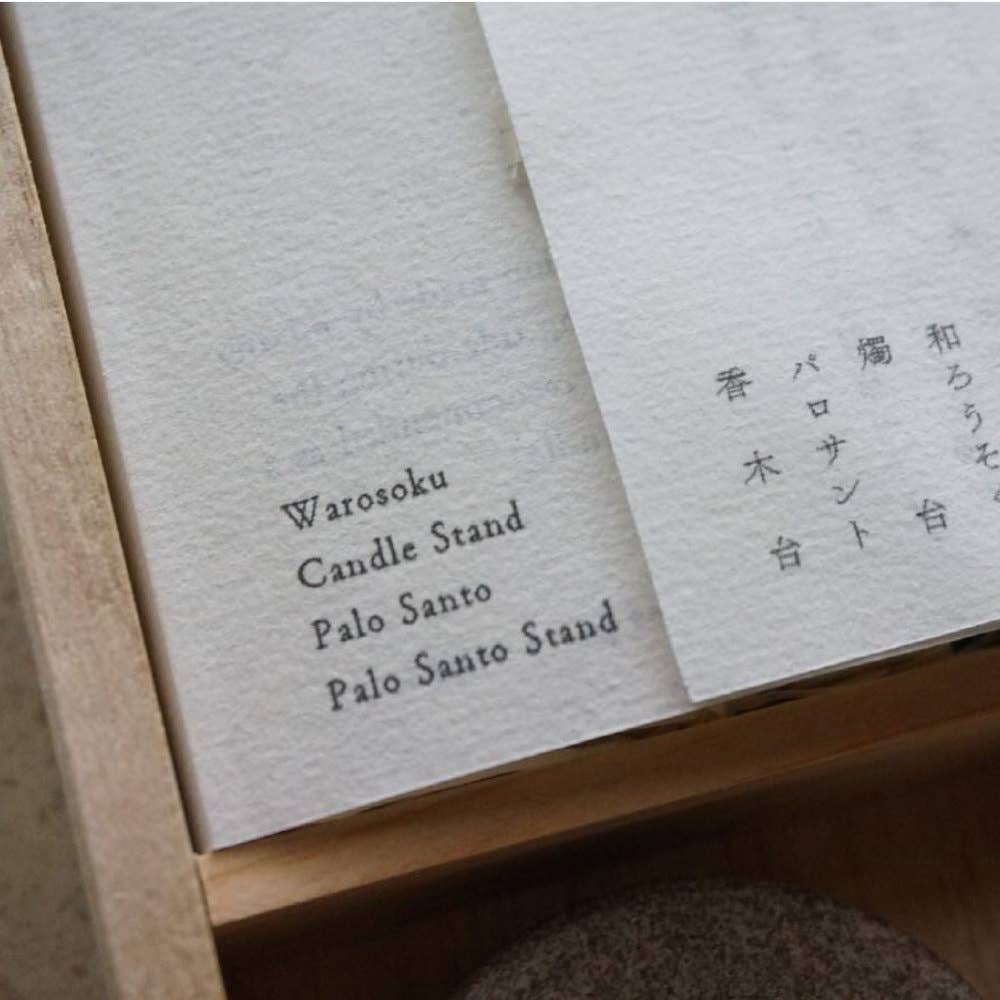 Warosoku
Candle Stand
Palo Santo
Palo Santo Stand
和ろうそ
燭台
パロサント
香木台